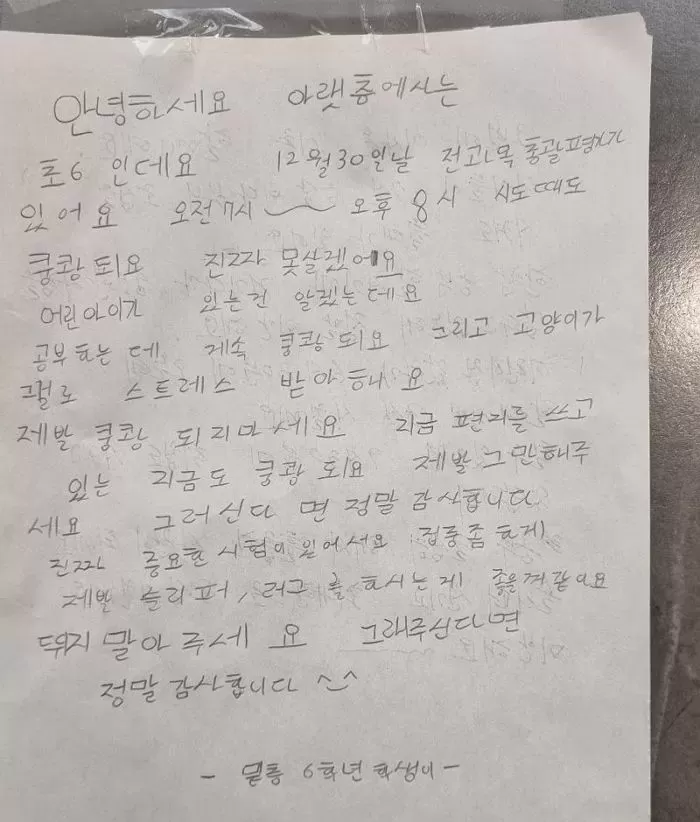 안녕하세요 아랫층에사는
초6 인데요 12월30일날 전과목 총괄평가가
있어요 오전7시 ~ 오후 8시 시도때도
쿵쾅 되요 진짜 못살겠어요
어린아이가 있는건 알겠는데요
공부하는데 계속 쿵쾅 되요 그리고 고양이가
그걸로 스트레스 받아하 요
제발 쿵쾅 되지마세요 지금 편지를 쓰고
있는 지금도 쿵쾅 되요 제발 그만해주
세요 그러신다 면 정말 감사합니다
진짜 중요한 시험이 있어서요 집중좀하게
제발 슬리퍼, 러그 를 하시는게 좋을꺼같아요
뛰지 말아 주세 요 그래주신다면
정말 감사합니다 ^_^
- 밑층 6학년 학생이 -